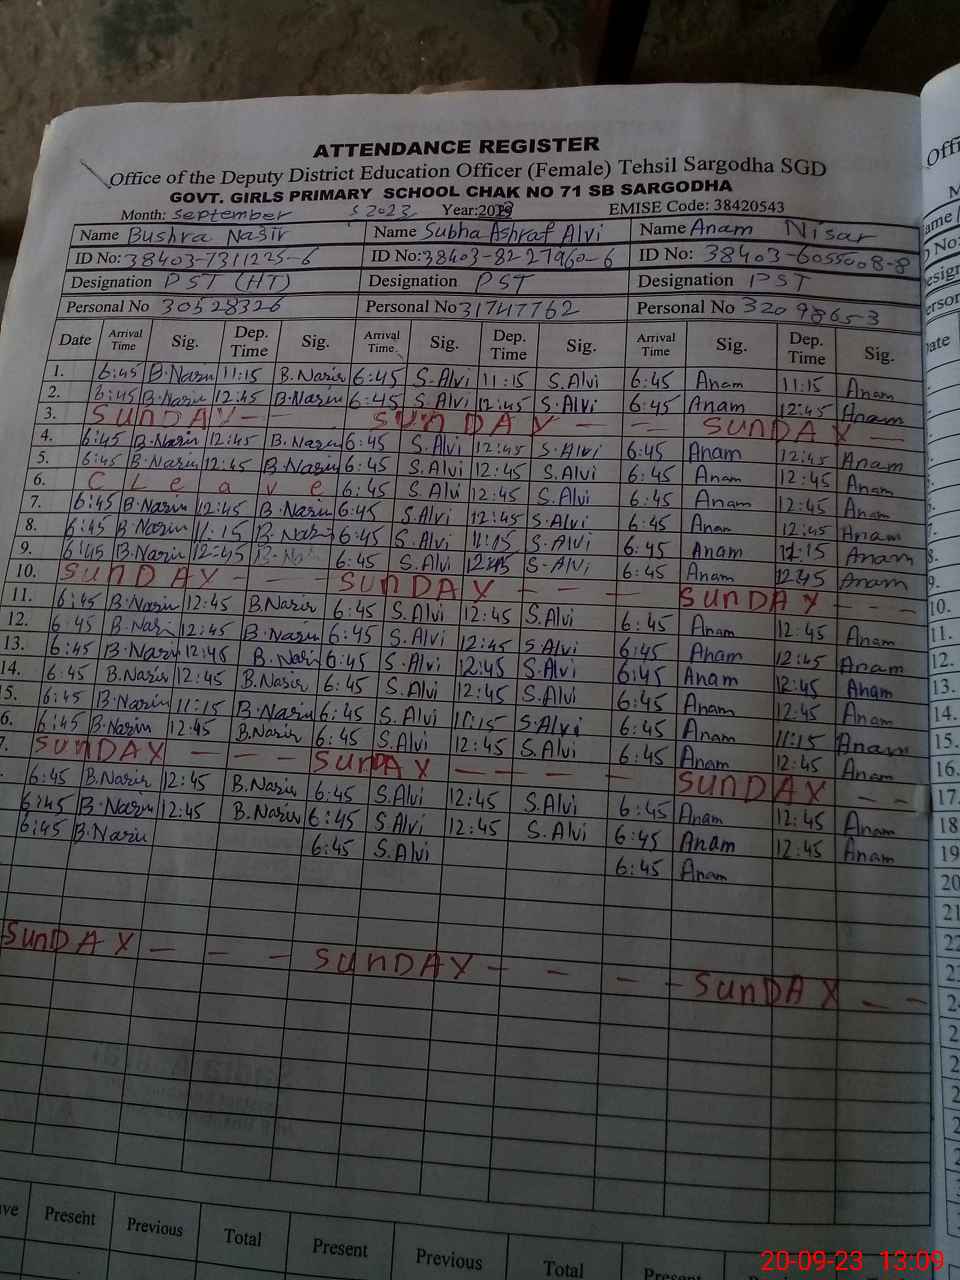 ATTENDANCE REGISTER
Office of the Deputy District Education Officer (Female) Tehsil Sargodha SGD
GOVT. GIRLS PRIMARY SCHOOL CHAK NO 71 SB SARGODHA
Month: September 2023 Year: EMISE Code: 38420543
Name Bushra Nasir Name Subha Ashraf Alvi Name Anam Nisar
ID No: 38403-7311225-6 ID No: 38403-8227960-6 ID No: 38403-6055008-8
Designation PST (HT) Designation PST Designation PST
Personal No 30528326 Personal No 31747762 Personal No 32098653
Date Arrival Time Sig. Dep. Time Sig. Arrival Time Sig. Dep. Time Sig. Arrival Time Sig. Dep. Time Sig.
1. 6:45 B.Nasir 11:15 B.Nasir 6:45 S.Alvi 11:15 S.Alvi 6:45 Anam 11:15 Anam
2. 6:45 B.Nasir 12:45 B.Nasir 6:45 S.Alvi 12:45 S.Alvi 6:45 Anam 12:45 Anam
3. SUNDAY - - SUNDAY - - SUNDAY - -
4. 6:45 B.Nasir 12:45 B.Nasir 6:45 S.Alvi 12:45 S.Alvi 6:45 Anam 12:45 Anam
5. 6:45 B.Nasir 12:45 B.Nasir 6:45 S.Alvi 12:45 S.Alvi 6:45 Anam 12:45 Anam
6. C Leave 6:45 S.Alvi 12:45 S.Alvi 6:45 Anam 12:45 Anam
7. 6:45 B.Nasir 12:45 B.Nasir 6:45 S.Alvi 12:45 S.Alvi 6:45 Anam 12:45 Anam
8. 6:45 B.Nasir 11:15 B.Nasir 6:45 S.Alvi 11:15 S.Alvi 6:45 Anam 11:15 Anam
9. 6:45 B.Nasir 12:45 6:45 S.Alvi 12:45 S.Alvi 6:45 Anam 12:45 Anam
10. SUNDAY - - - SUNDAY - - - SUNDAY - - -
11. 6:45 B.Nasir 12:45 B.Nasir 6:45 S.Alvi 12:45 S.Alvi 6:45 Anam 12:45 Anam
12. 6:45 B.Nasir 12:45 B.Nasir 6:45 S.Alvi 12:45 S.Alvi 6:45 Anam 12:45 Anam
13. 6:45 B.Nasir 12:45 B.Nasir 6:45 S.Alvi 12:45 S.Alvi 6:45 Anam 12:45 Anam
14. 6:45 B.Nasir 12:45 B.Nasir 6:45 S.Alvi 12:45 S.Alvi 6:45 Anam 12:45 Anam
5. 6:45 B.Nasir 11:15 B.Nasir 6:45 S.Alvi 11:15 S.Alvi 6:45 Anam 11:15 Anam
6. 6:45 B.Nasir 12:45 B.Nasir 6:45 S.Alvi 12:45 S.Alvi 6:45 Anam 12:45 Anam
7. SUNDAY - - - SUNDAY - - - - - SUNDAY - -
6:45 B.Nasir 12:45 B.Nasir 6:45 S.Alvi 12:45 S.Alvi 6:45 Anam 12:45 Anam
6:45 B.Nasir 12:45 B.Nasir 6:45 S.Alvi 12:45 S.Alvi 6:45 Anam 12:45 Anam
6:45 B.Nasir 6:45 S.Alvi 6:45 Anam
SUNDAY - - - SUNDAY - - - - SUNDAY - -
Present Previous Total Present Previous Total Present
20-09-23 13:09